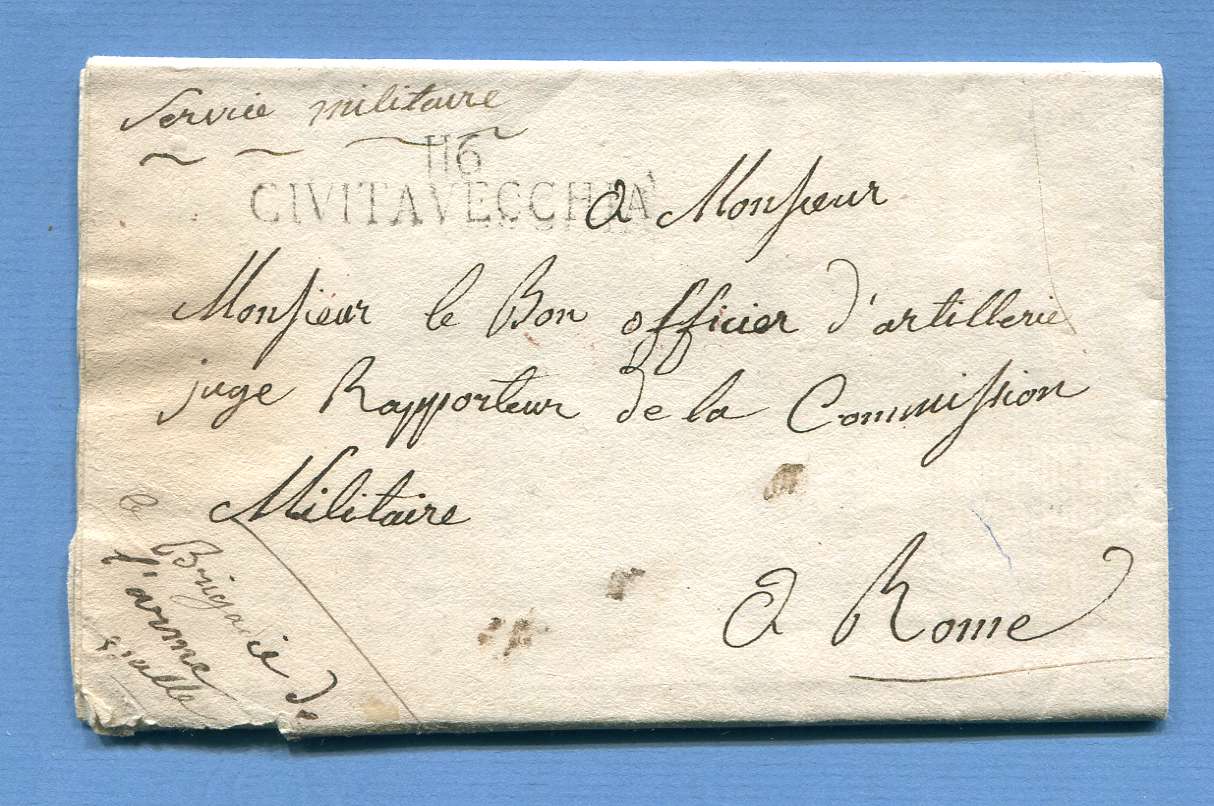 Service militaire
116
CIVITAVECCHIA
a Monsieur
Monsieur le Bon officier d'artillerie
juge Rapporteur de la Commission
Militaire
a Rome
le
Brigadie de
l'arme